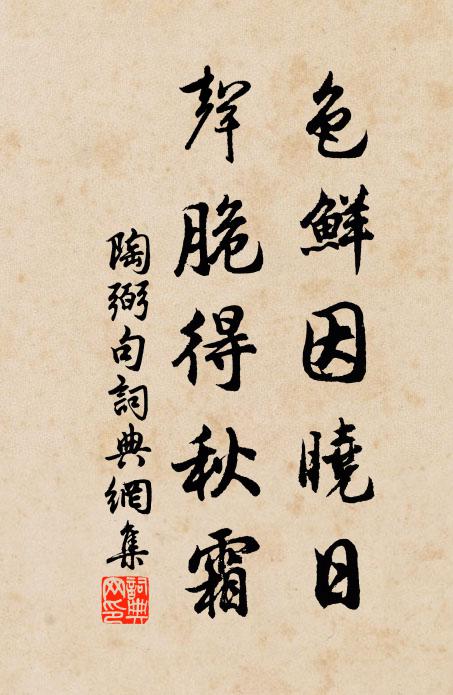 色鮮因曉日
聲脆得秋霜
陶弼句詞典網集
詞典网印